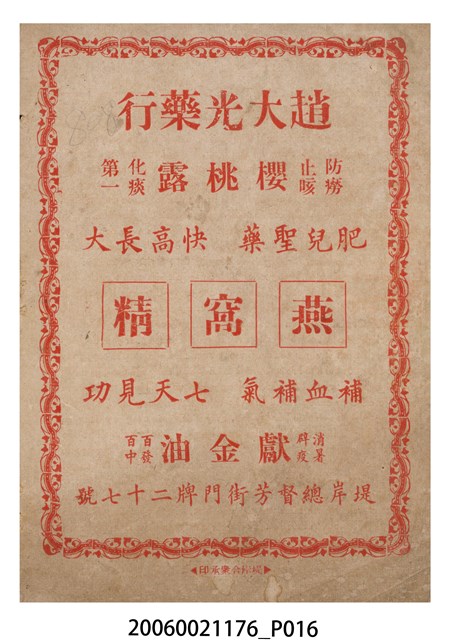 趙大光藥行
防癆止咳 櫻桃露 化痰第一
肥兒聖藥 快高長大
燕窩精
補血補氣 七天見功
消暑辟疫 獻金油 百發百中
堤岸總督芳街門牌二十七號
承印
20060021176_P016